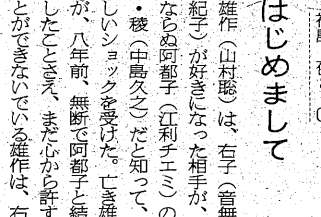 はじめまして
雄作（山村聡）は、右子（音無
紀子）が好きになった相手が、
ならぬ阿都子（江利チエミ）の
・稜（中島久之）だと知って、
しいショックを受けた。亡き雄
が、八年前、無断で阿都子と結
したことさえ、まだ心から許す
とができないでいる雄作は、右